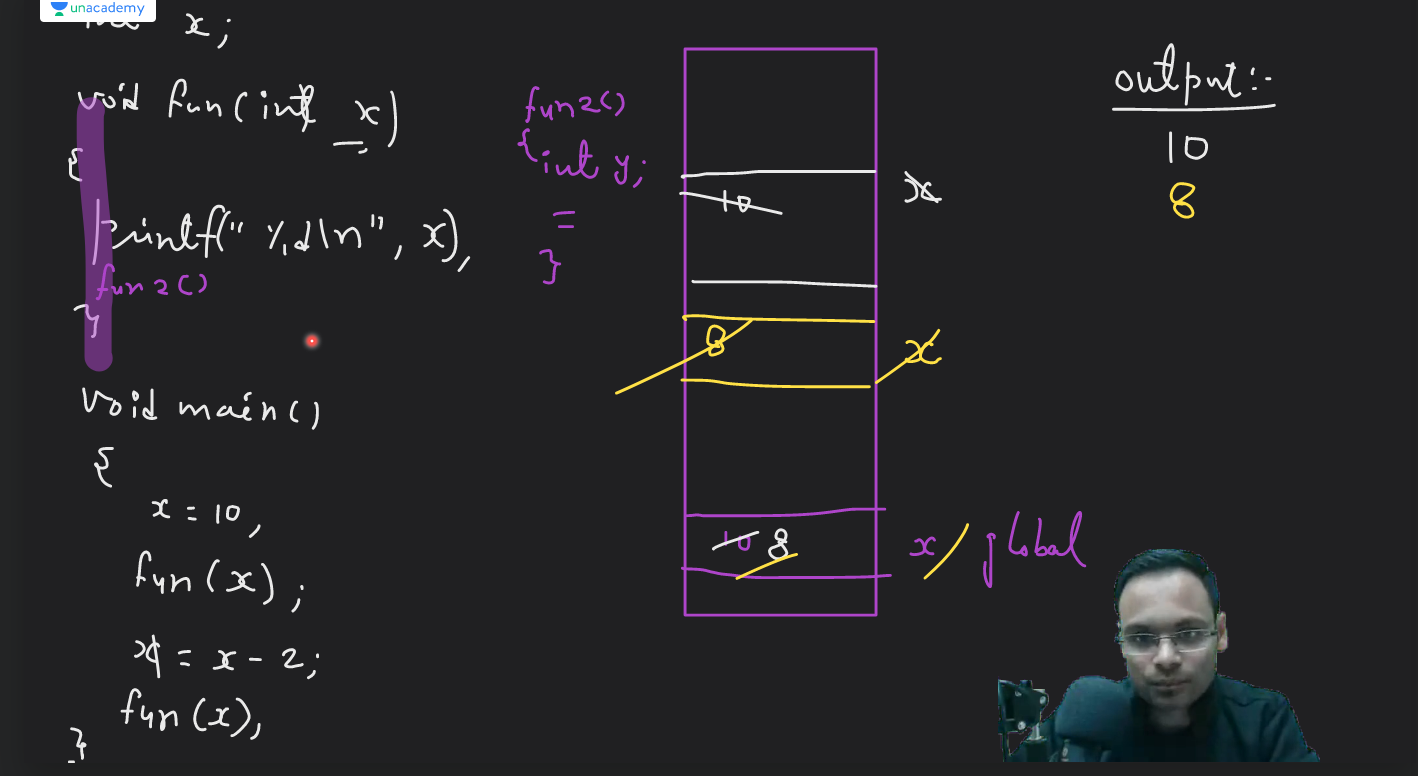 unacademy
int x;
void fun(int x)
{
printf("%d\n", x),
fun2()
}
void main()
{
x = 10,
fun(x);
x = x - 2;
fun(x),
}
fun2()
{ int y;
=
}
10
x
8
x
10 8
x global
output:-
10
8